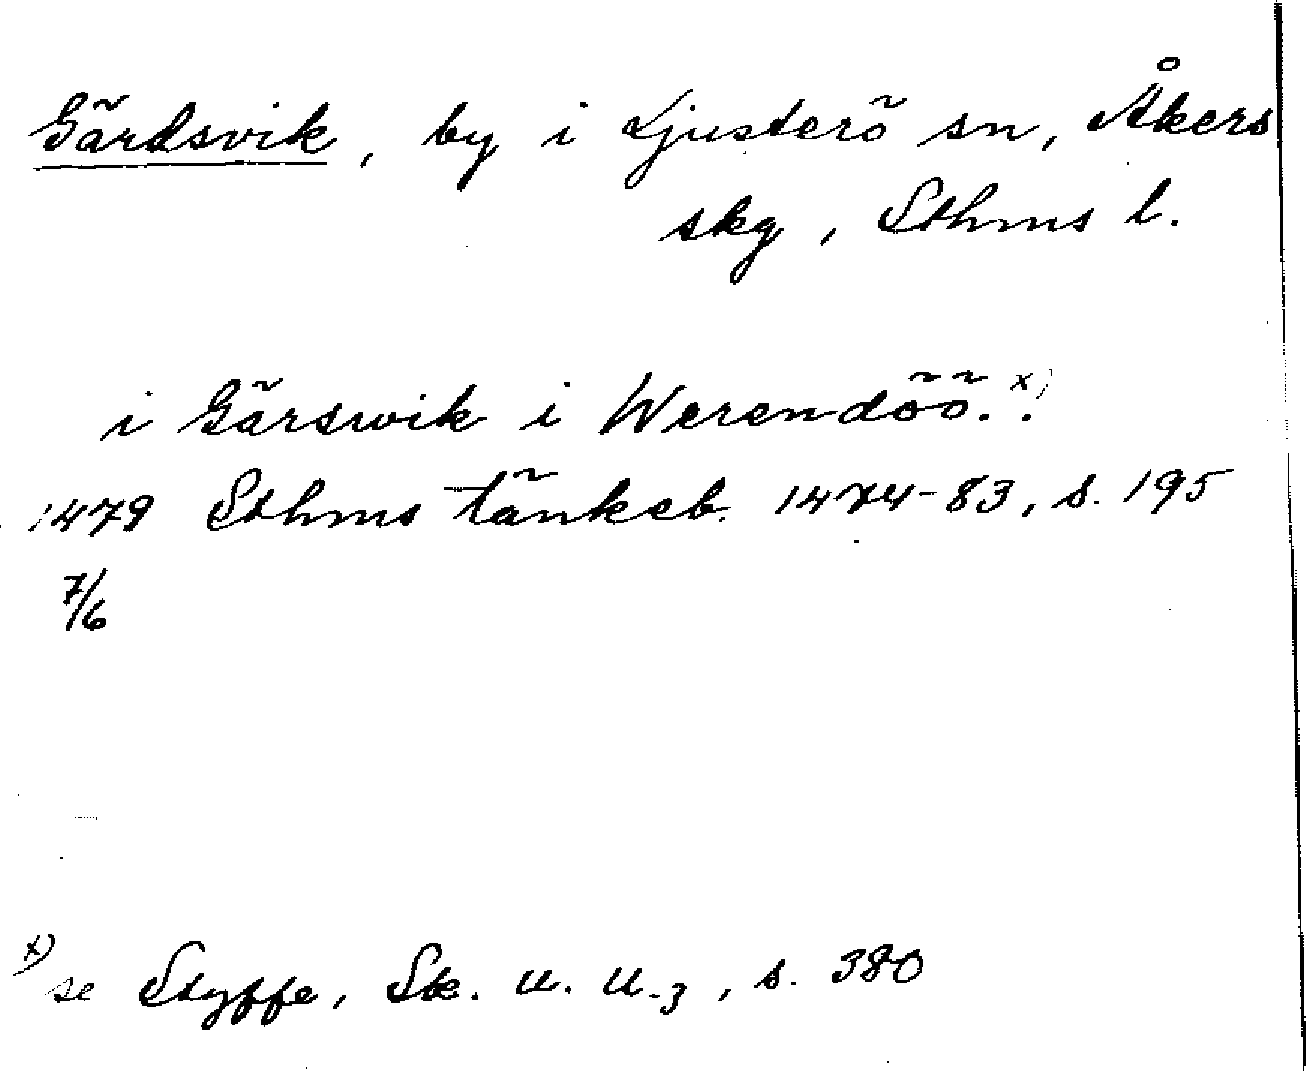 Gärdsvik, by i Ljusterö sn, Åkers
skg, Sthms l.
i Gärswik i Werendöö. x).
1479 Sthms tänkeb. 1474-83, s. 195
7/6
x) se Styffe, Sk. u. u. 3, s. 380